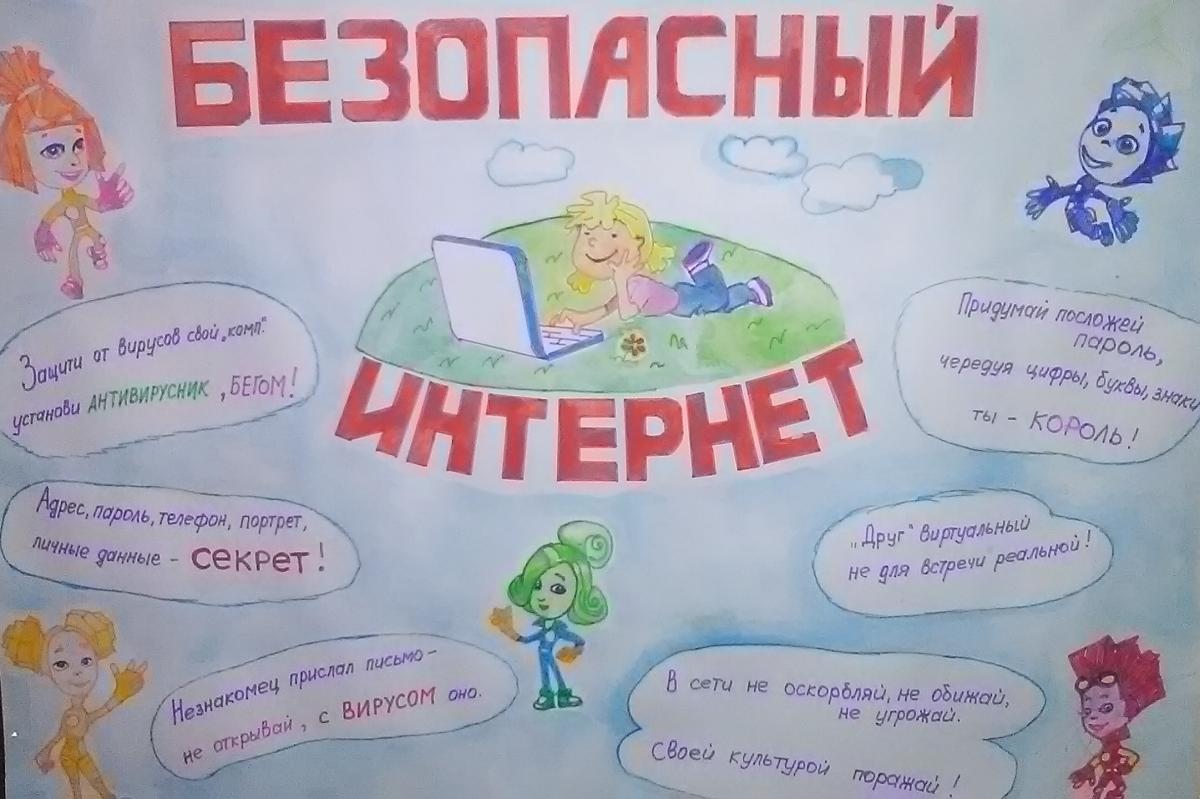 БЕЗОПАСНЫЙ
ИНТЕРНЕТ
Защити от вирусов свой „комп".
установи АНТИВИРУСНИК , БЕГОМ!
Придумай посложей
пароль,
чередуя цифры, буквы, знаки
ты - КОРОЛЬ!
Адрес, пароль, телефон, портрет,
личные данные - секрет!
„Друг" виртуальный
не для встречи реальной!
Незнакомец прислал письмо -
не открывай, с ВИРУСОМ оно.
В сети не оскорбляй, не обижай,
не угрожай.
Своей культурой поражай!